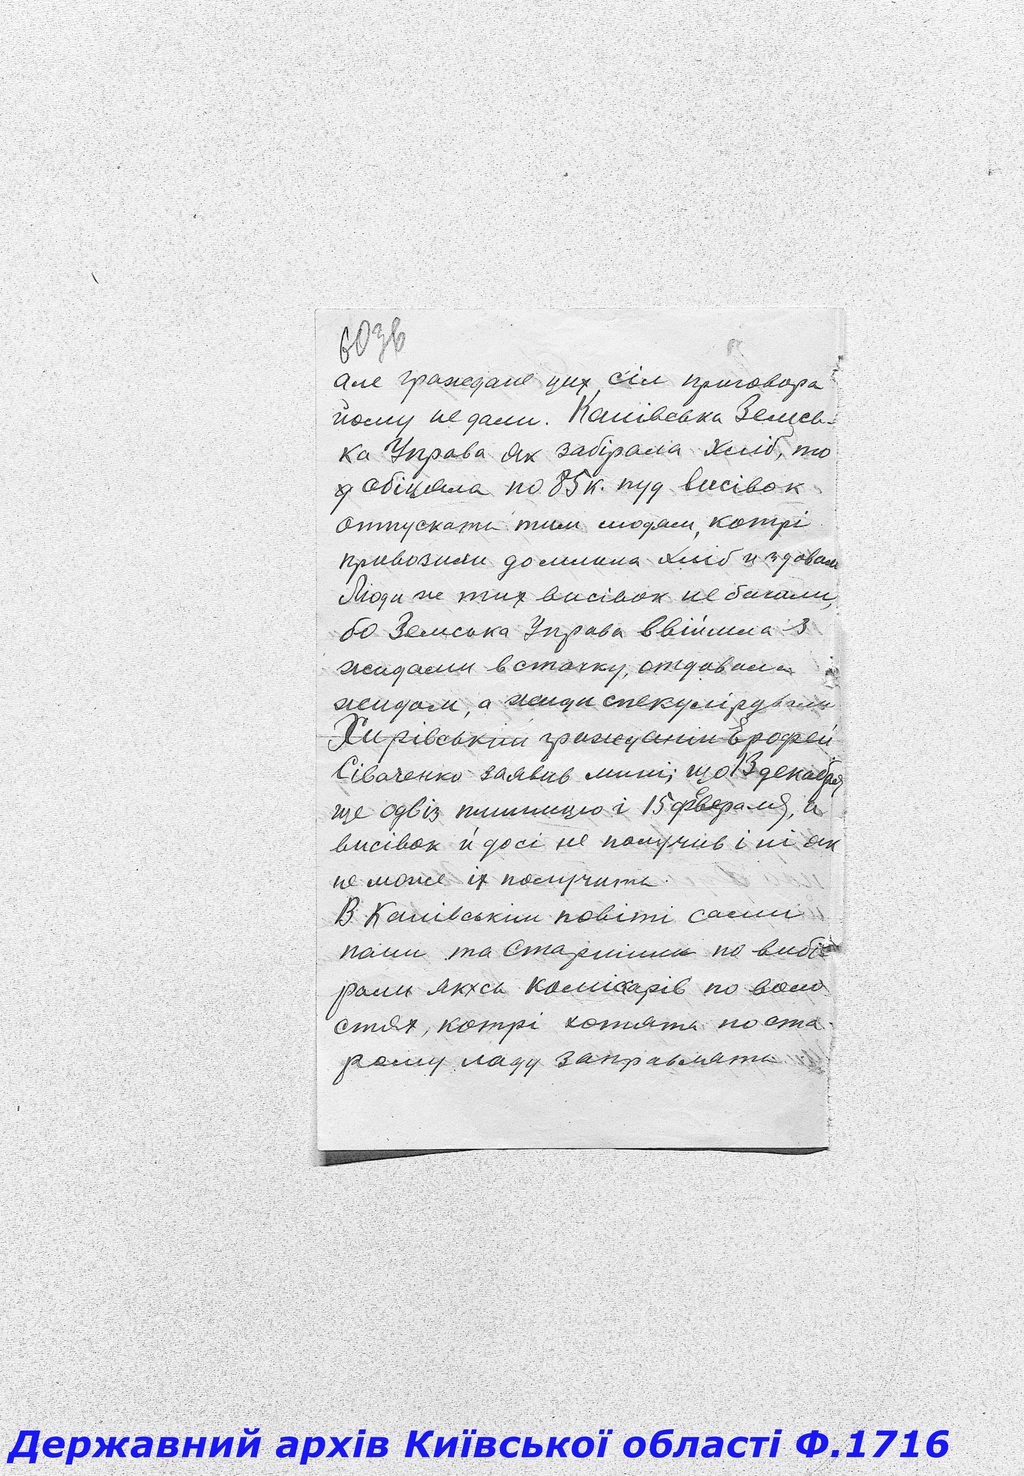 60зв
але граждане цих сіл приговора
йому не дали. Канівська Земсь-
ка Управа як забірала хліб, то
обіцяла по 85к. пуд висівок
отпускати тим людям, котрі
привозили до млина хліб и здавали
Люди же тих висівок не бачали,
бо Земська Управа ввійшла з
жидами встачку, отдавала
жидам, а жиди спекулірували
Хирівський гражданин Ерофей
Сіваченко заявив мині, що 13 декабря
ще одвіз пшеницю і 15 февраля, а
висівок й досі не получив і ні як
не може іх получити.
В Канівськім повіті самі
пани та Старшини по вибі-
рали якхсь комісарів по воло
стях, котрі хотять поста-
рому ладу заправляти
Державний архів Київської області Ф.1716